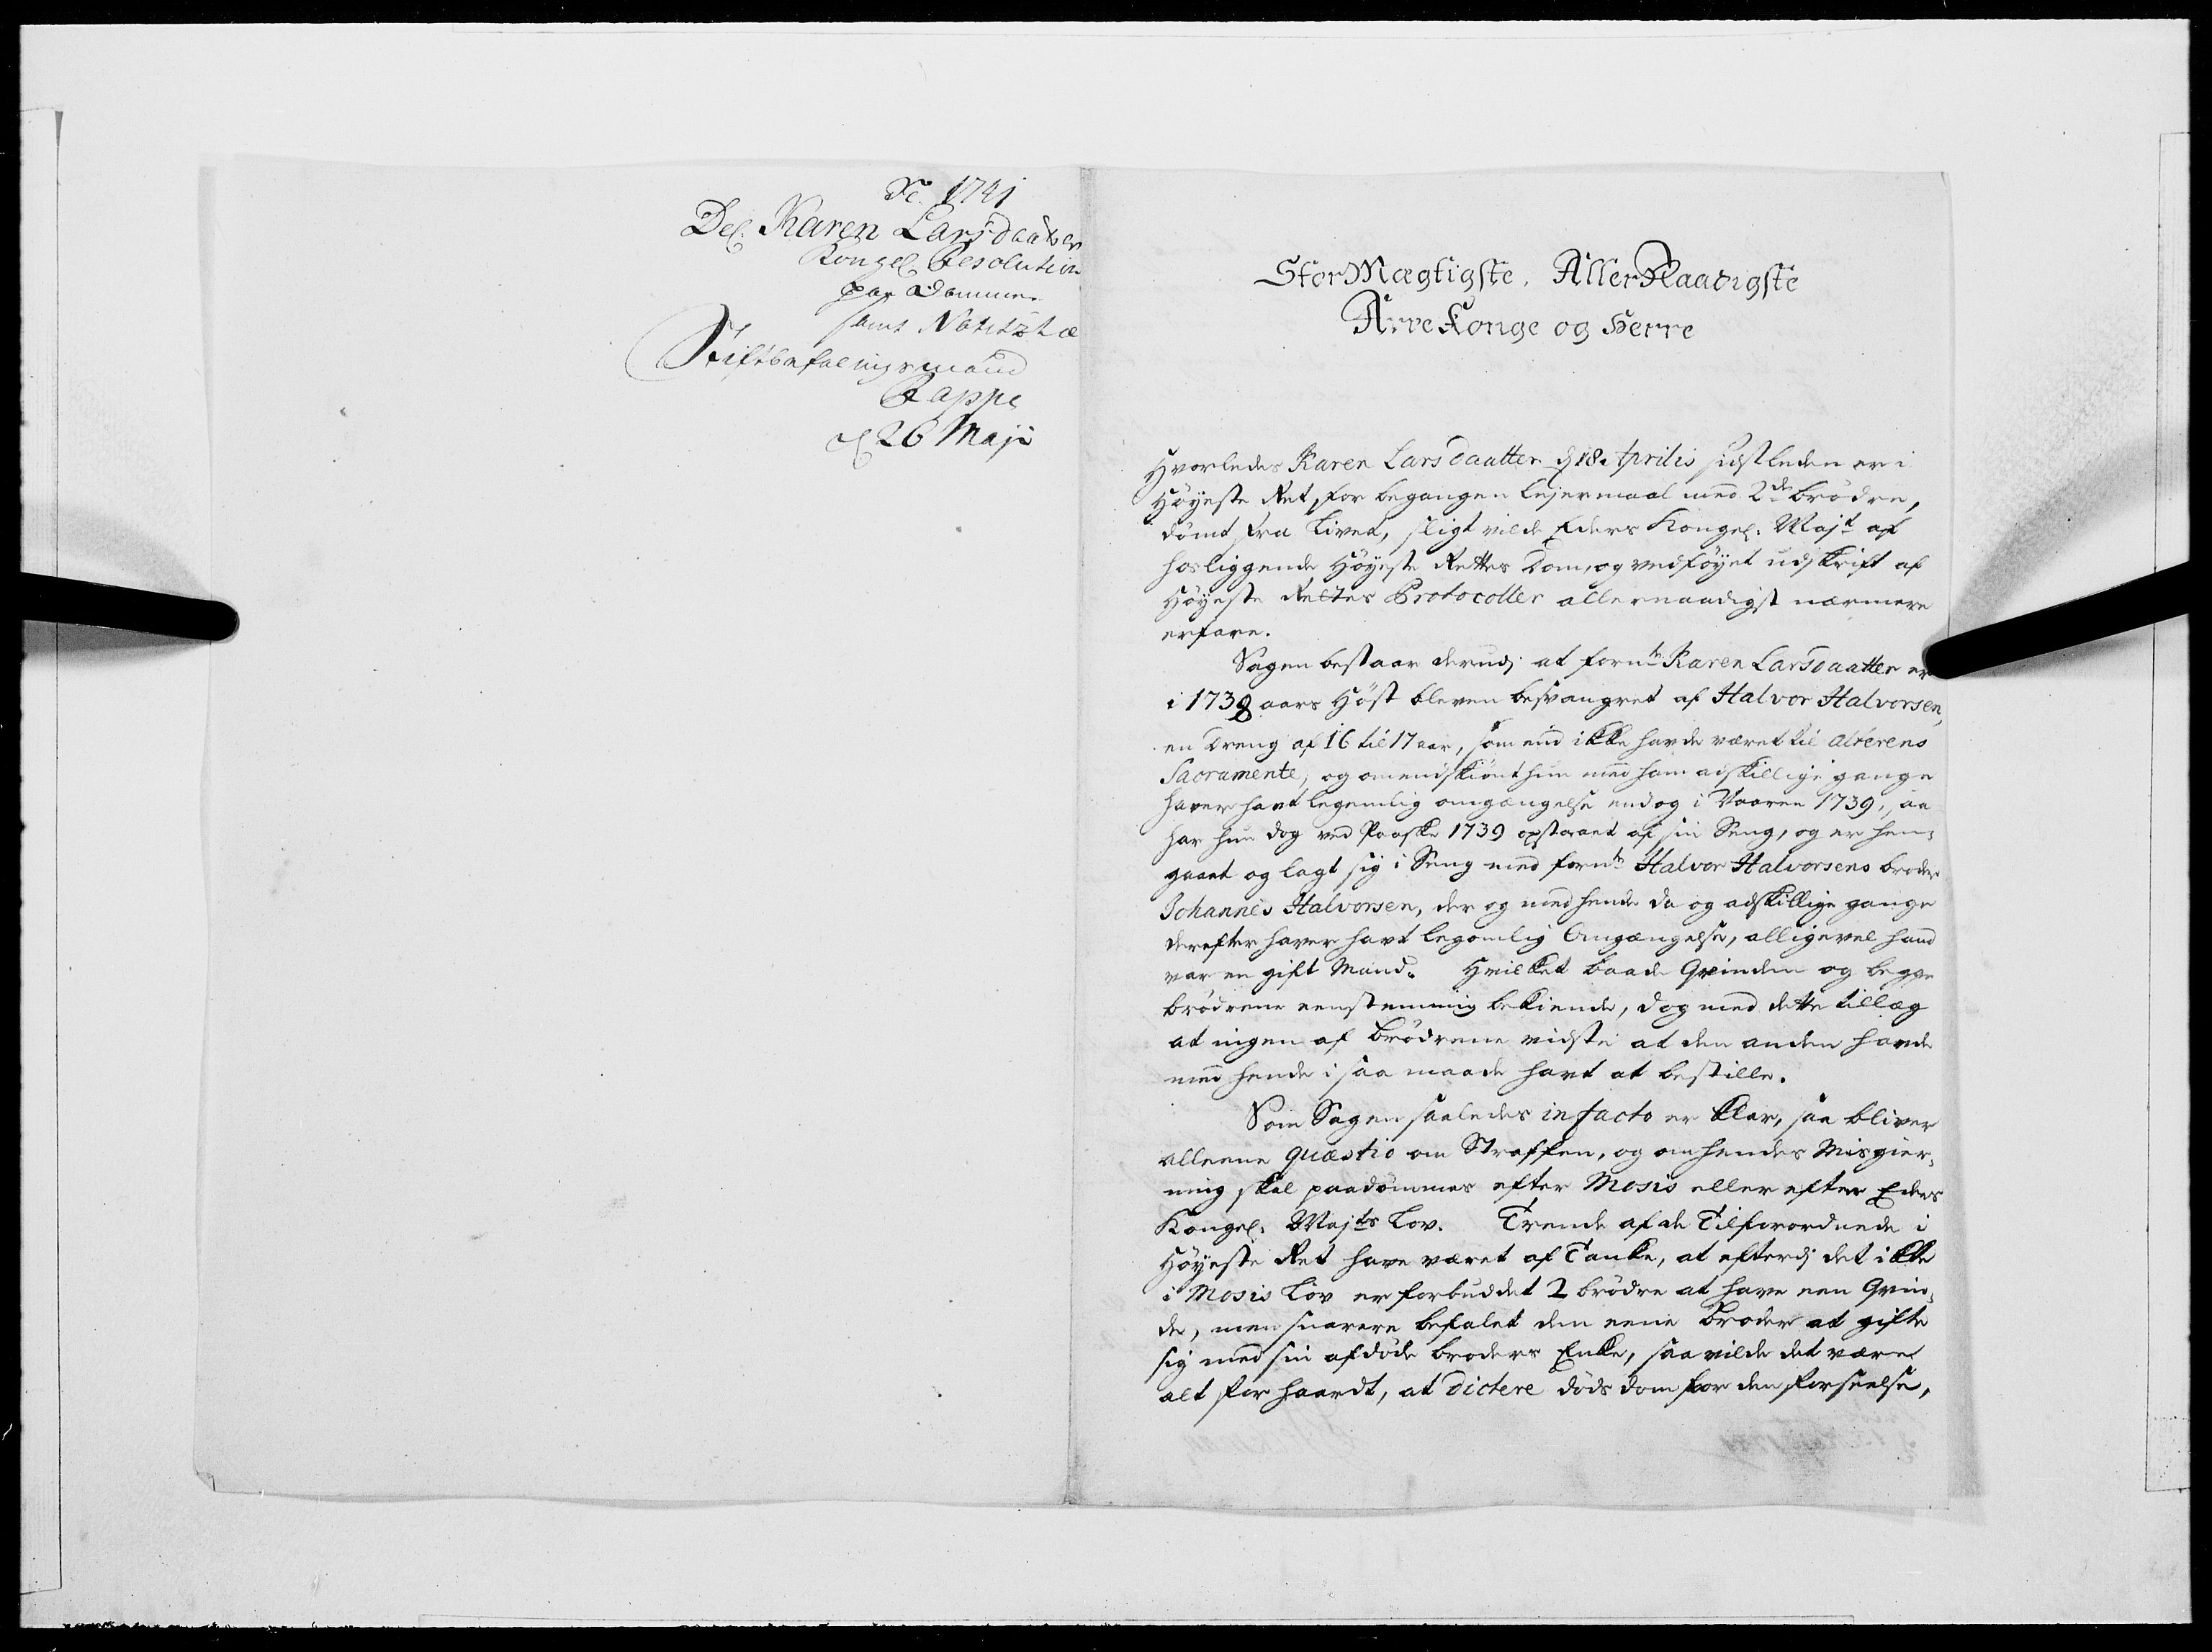 1741
Del. Karen Larsdaatter
Kongel. Resolution
paa Dommen
samt Notitz te
Stiftbefalingsmand
Rappe
d 26 Maji
StorMægtigste, AllerNaadigste
ArveKonge og Herre
Hvorledes Karen Larsdaatter d 18 Aprilis sidstleden er i
Høyeste Ret, for begangen lejermaal med 2de brødre,
dømt fra Livet, sligt vilde Eders Kongel. Majt af
hosliggende Høyeste Rettes Dom, og vedføyet udskrift af
Høyeste Rettes Protocoller allernaadigst nærmere
erfare.
Sagen bestaar derudj at fornte Karen Larsdaatter er
i 1738 aars Høst bleven besvangret af Halvor Halvorsen,
en Dreng af 16 til 17 aar, som end ikke havde været til Alterens
Sacramente, og omendskiønt hun med ham adskillige gange
haver havt legemlig omgængelse endog i Vaaren 1739, saa
har hun dog ved Paaske 1739 opstaaet af sin Seng, og er hen-
gaaet og lagt sig i Seng med fornte Halvor Halvorsens broder
Johannes Halvorsen, der og med hende da og adskillige gange
derefter haver havt legemlig Omgængelse, alligevel hand
var en gift Mand. Hvilket baade Qvinden og begge
brødrene eenstemmig bekiende, dog med dette tillæg
at ingen af brødrene vidste at den anden havde
med hende i saa maade havt at bestille.
Som Sagen saaledes in facto er klar, saa bliver
alleene quæstio om Straffen, og om hendes Misgier-
ning skal paadømmes efter Mosis eller efter Eders
Kongel. Majts Lov. Trende af de Tilforordnede i
Høyeste Ret have været af Tanke, at efterdj det ikke
i Mosis Lov er forbuddet 2 brødre at have een Qvin-
de, men snarere befalet den eene broder at gifte
sig med sin afdøde broders Enke, saa vilde det være
alt for haardt, at dictere døds dom for den forseelse,